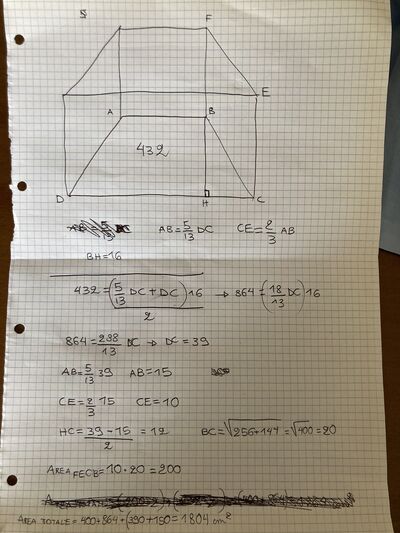 F
E
A B
432
D H C
AB = 5/13 DC CE = 2/3 AB
BH=16
432 = (5/13 DC + DC) 16 / 2 → 864 = (18/13 DC) 16
864 = 288/13 DC → DC = 39
AB = 5/13 39 AB = 15
CE = 2/3 15 CE = 10
HC = 39 - 15 / 2 = 12 BC = √256+144 = √400 = 20
AREA FECB = 10 · 20 = 200
AREA TOTALE = 400 + 864 + (390 + 150 = 1804 cm²